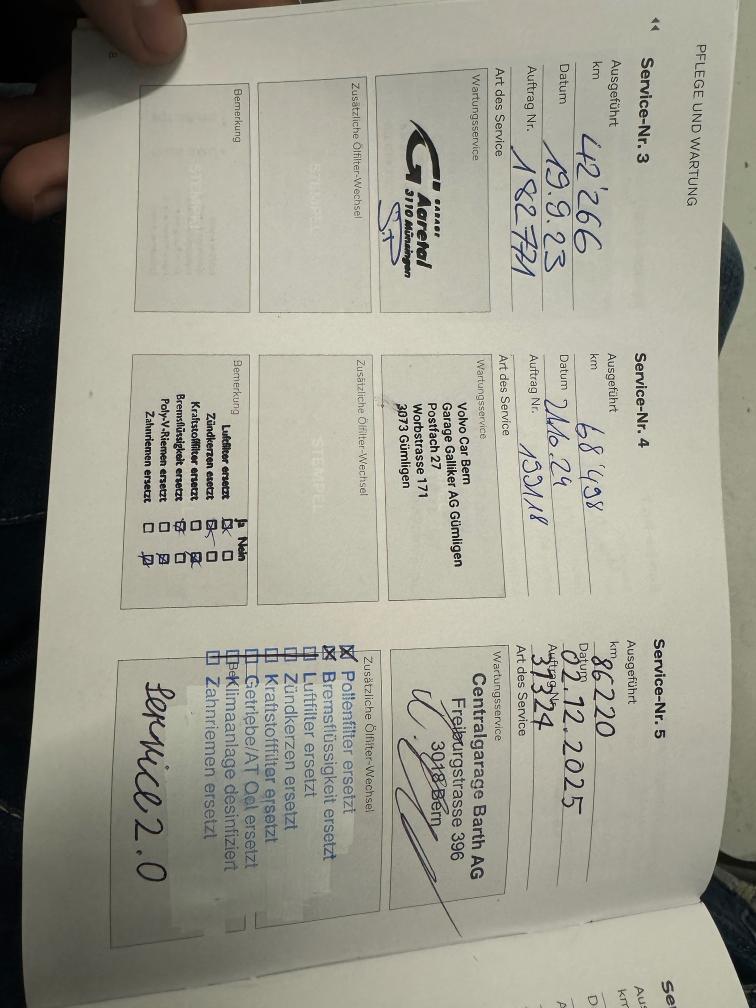 PFLEGE UND WARTUNG
Service-Nr. 3
Ausgeführt
km 42'266
Datum 19.9.23
Auftrag Nr. 182771
Art des Service
Wartungsservice
GARAGE
Aaretal
3110 Münsingen
Zusätzliche Ölfilter-Wechsel
STEMPEL
Bemerkung
Service-Nr. 4
Ausgeführt
km 68'498
Datum 21.10.24
Auftrag Nr. 199118
Art des Service
Wartungsservice
Volvo Car Bern
Garage Galliker AG Gümligen
Postfach 27
Worbstrasse 171
3073 Gümligen
Zusätzliche Ölfilter-Wechsel
STEMPEL
Bemerkung
Ja Nein
Luftfilter ersetzt
Zündkerzen esetzt
Kraftstoffilter ersetzt
Bremsflüssigkeit ersetzt
Poly-V-Riemen ersetzt
Zahnriemen ersetzt
Service-Nr. 5
Ausgeführt
km 86220
Datum 02.12.2025
Auftrag Nr. 37324
Art des Service
Wartungsservice
Centralgarage Barth AG
Freiburgstrasse 396
3018 Bern
Zusätzliche Ölfilter-Wechsel
Pollenfilter ersetzt
Bremsflüssigkeit ersetzt
Luftfilter ersetzt
Zündkerzen ersetzt
Kraftstofffilter ersetzt
Getriebe/AT Oel ersetzt
Klimaanlage desinfiziert
Zahnriemen ersetzt
Service 2.0